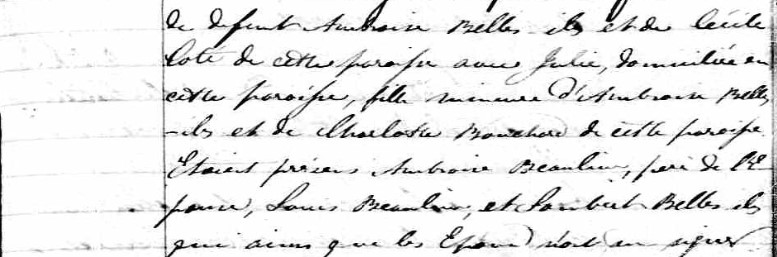 de defunt Ambroise Belles-iles et de Cécile
Coté de cette paroisse avec Julie, domiciliée en
cette paroisse, fille mineure d'Ambroise Belles
-iles et de Charlotte Bouchard de cette paroisse.
Etaient présens Ambroise Beaulieu, pere de l'E-
pouse, Louis Beaulieu, et Lambert Belles iles
qui ainsi que les Epoux n'ont su signer